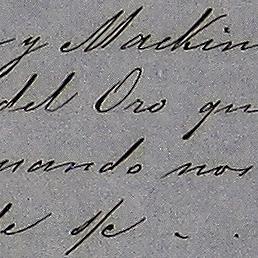 y Mackin
del Oro qu
uando nos
de s/c - .